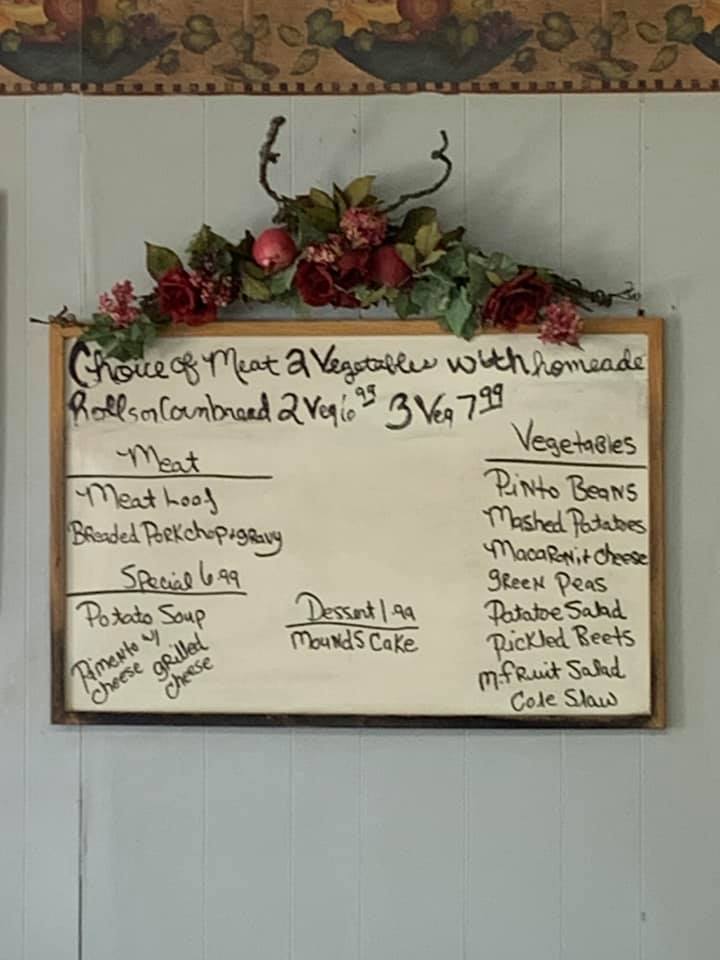 Choice of Meat 2 Vegetables with homeade
Rolls or Cornbread 2 Veg 6.99 3 Veg 7.99
Meat
Meat Loaf
Breaded Pork chop + gravy
Special 6.99
Potato Soup
w/
Pimento grilled
cheese cheese
Dessert 1.99
Mounds Cake
Vegetables
Pinto Beans
Mashed Patatoes
Macaroni + cheese
green Peas
Patatoe Salad
Pickled Beets
M-fRuit Salad
Cole Slaw